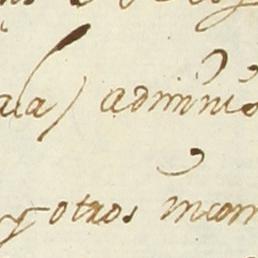 ala) adminis
y otros incom